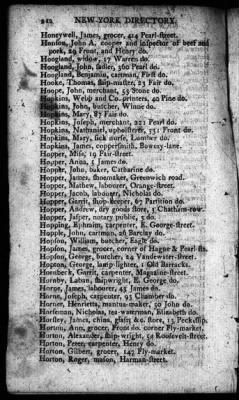 212 NEW-YORK DIRECTORY.
Honeywell, James, grocer, 414 Pearl-street.
Hanson, John A. cooper and inspector of beef and
pork, 29 Front, and Henry do.
Hoogland, widow, 17 Warren do.
Hoogland, John, sadler, 360 Pearl do.
Hoogland, Benjamin, cartman, First do.
Hooke, Thomas, ship-master, 23 Fair do.
Hoope, John, merchant, 53 Stone do.
Hopkins, Webb and Co. printers, 40 Pine do.
Hopkins, John, butcher, Winne do.
Hopkins, Mary, 87 Fair do.
Hopkins, Joseph, merchant, 221 Pearl do.
Hopkins, Nathaniel, upholsterer, 75 Front do.
Hopkins, Mary, sick nurse, Lumber do.
Hopkins, James, coppersmith, Bowery-lane.
Hopper, Miss, 19 Fair-street.
Hopper, Anna, 1 James do.
Hopper, John, baker, Catharine do.
Hopper, James, shoemaker, Greenwich road.
Hopper, Mathew, labourer, Orange-street.
Hopper, Jacob, labourer, Nicholas do.
Hopper, Garrit, shop-keeper, 67 Partition do.
Hopper, Andrew, dry goods store, 5 Chatham-row.
Hopper, Jasper, notary public, 5 do.
Hopping, Ephraim, carpenter, E. George-street.
Hopple, John, cartman, 26 Barclay do.
Hopson, William, butcher, Eagle do.
Hopson, James, grocer, corner of Hague & Pearl-sts.
Hopson, George, butcher, 24 Vandewater-street.
Hopton, George, lamp-lighter, 1 Old Barracks.
Hornbeck, Garrit, carpenter, Magazine-street.
Hornby, Laban, shipwright, E. George do.
Horne, James, labourer, 45 James do.
Horne, Joseph, carpenter, 95 Chamber do.
Horner, Henrietta, mantua-maker, 20 John do.
Horseman, Nicholas, tea-waterman, Elizabeth do.
Horsley, James, china, glass, &c. store, 13 Peckslip.
Horton, Ann, grocer, Front do. corner Fly-market.
Horton, Alexander, ship-wright, 54 Roosevelt-street.
Horton, Peter, carpenter, Henry do.
Horton, Gilbert, grocer, 147 Fly-market.
Horton, Roger, mason, Harman-street.